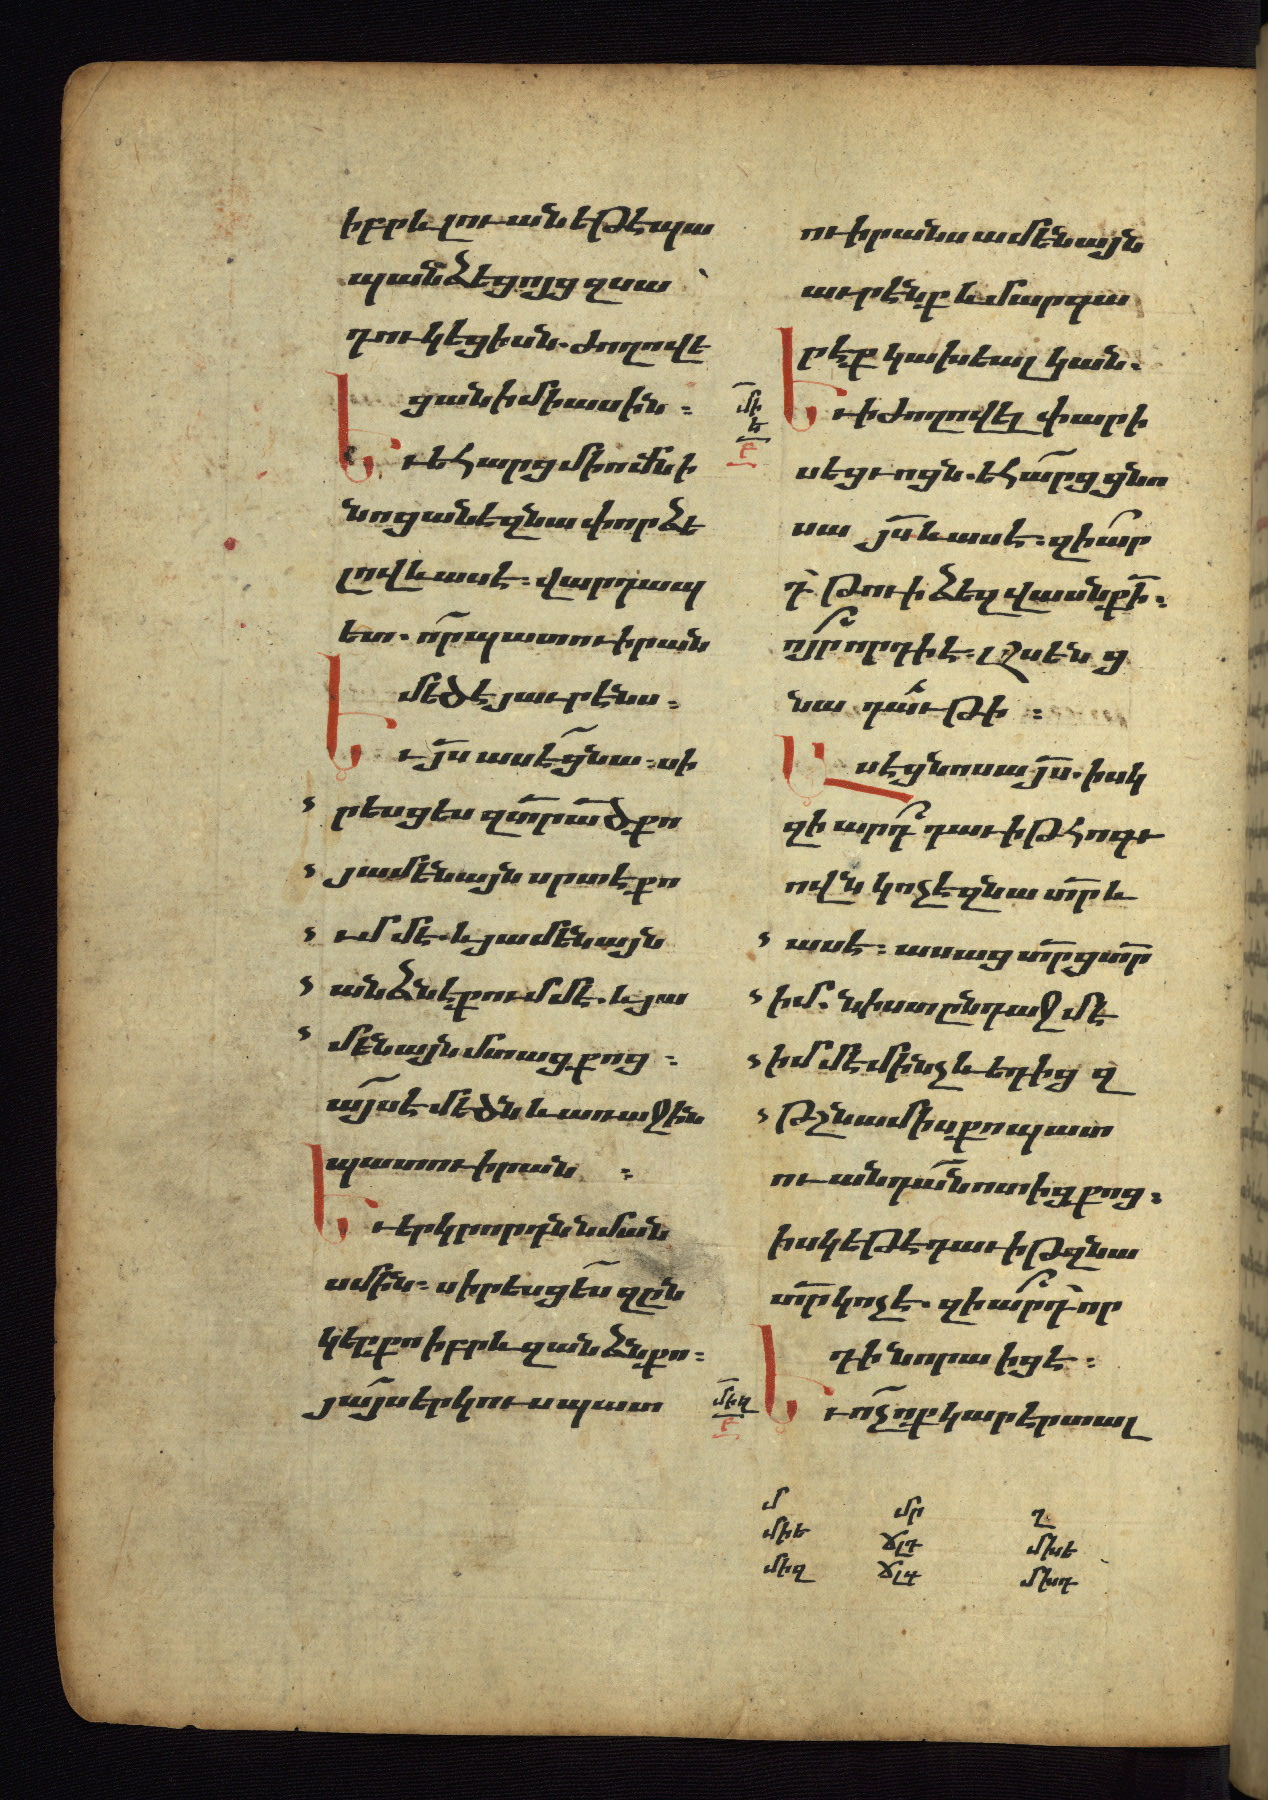 իբրև լուան եթէ պա
պանձեցոյց զսա
դուկեցիսն. ժողովե
ցան ի միասին։
Եւ եհարց մի ոմն ի
նոցանէ զնա փորձե
լով և ասէ։ վարդապ
ետ. ո՞ր պատուիրան
մեծ է յաւրէնս։
Եւ յս ասէ ցնա։ սի
րեսցես զտր ած քո
յամենայն սրտէ քո
ւմմէ. և յամենայն
անձնէ քումմէ. և յա
մենայն մտաց քոց։
այս է մեծն և առաջին
պատուիրան։
Եւ երկրորդն նման
սմին։ սիրեսցես զըն
կեր քո իբրև զանձն քո։
յայս երկուս պատ
ուիրանս ամենայն
աւրէնք և մարգա
րէք կախեալ կան.
Եւ ի ժողովել փարի
սեցւոցն. եհարց ցնո
սա յս և ասէ։ զի՞ար
դ թուի ձեզ վասն քի.
ո՞յր որդի է. ասեն ց
նա դաւթի։
Ասէ ցնոսա յս. իսկ
զիարդ դաւիթ հոգւ
ովն կոչէ զնա տր և
ասէ։ ասաց տր ցտր
իմ. նիստ ընդ աջմէ
իմմէ մինչև եդից զ
թշնամիս քո պատ
ուանդան ոտից քոց։
իսկ եթէ դաւիթ զնա
տր կոչէ. զի՞արդ որ
դի նորա իցէ։
Եւ ոչ ոք կարէր տալ